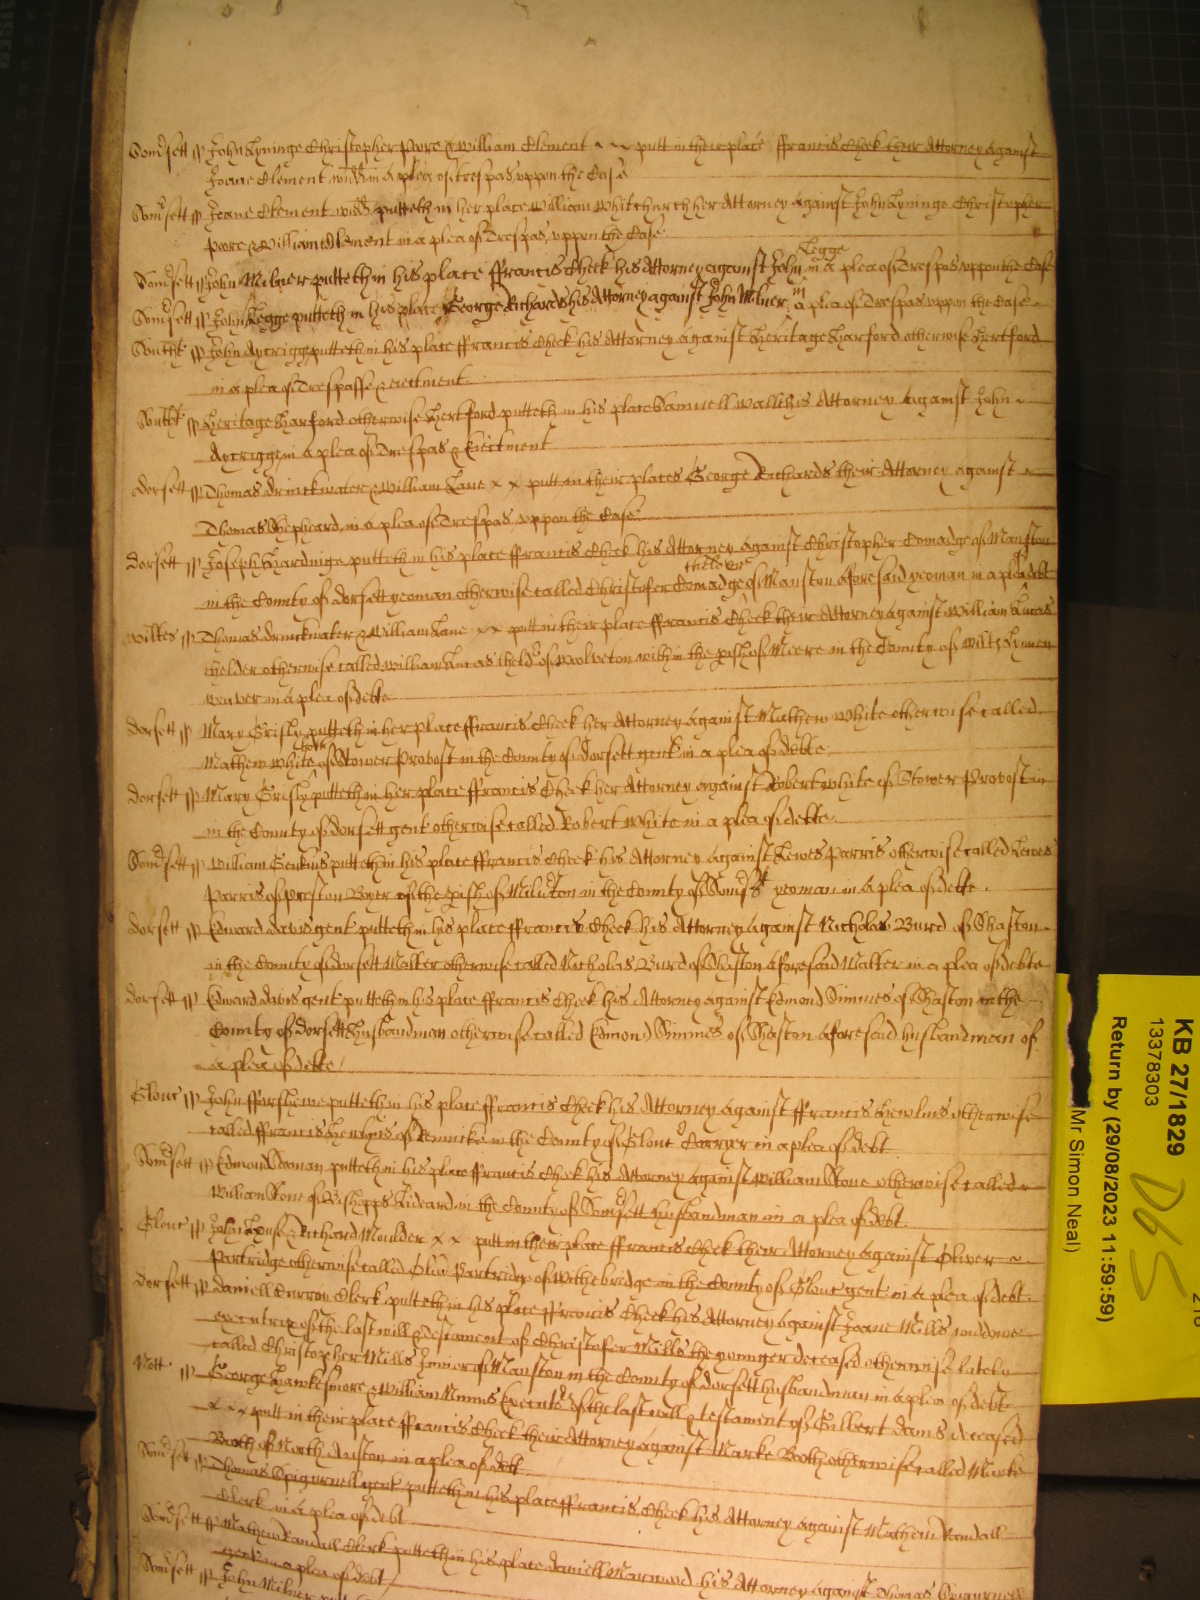 Somsett ss John Lyninge Christopher Poore & William Clement ~ ~ putt in their place ffrancis Cheek their Attorney against
Joane Clement widd in a plea of trespas uppon the Case
Somsett ss Joane Clement widd putteth in her place William Whitchurch her Attorney against John Lyninge Christopher
Poore & William Clement in a plea of Trespas uppon the Case
Legge
Somsett ss John Milner putteth in his place ffrancis Cheek his Attorney against John in a plea of Trespas uppon the Case
Somsett ss John Legge putteth in his place George Richards his Attorney against John Milner in a plea of Trespas uppon the Case
Southt ss John Aytrigg putteth in his place ffrancis Cheek his Attorney against Heritage Harford otherwise Hertford
in a plea of Trespasse & eiectment
Southt ss Heritage Harford otherwise Hertford putteth in his place Samuell Wallis his Attorney against John ~
Aytrigg in a plea of Trespas & Eiectment
dorsett ss Thomas drinckwater & William Lane x x putt in their places George Richards their Attorney against ~
Thomas Shepheard in a plea of Trespas uppon the Case
dorsett ss Joseph Hardinge putteth in his place ffrancis Cheek his Attorney against Christopher Comadge of Manston
thelder
in the County of dorsett yeoman otherwise called Christofer Comadge of Manston aforesaid yeoman in a plea debt
Wiltes ss Thomas drinckwater & William Lane x x putt in their place ffrancis Cheek their Attorney against William Lucas
thelder otherwise called William Lucas theld of Wolveton within the pish of Meere in the County of Wilts Lynnen
weaver in a plea of debte
dorsett ss Mary Grisly putteth in her place ffrancis Cheek her Attorney against Mathew White otherwise called
Mathew White of Stower Provost in the County of dorsett gent in a plea of debte
dorsett ss Mary Grisly putteth in her place ffrancis Cheek her Attorney against Robert White of Stower Provost in
in the County of dorsett gent otherwise called Robert White in a plea of debte
Somsett ss William Jenkins putteth in his place ffrancis Cheek his Attorney against Lewes Parris otherwise called Lewes
Parris of Preston Boyer of the pish of Milvton in the County of Somsett yeoman in a plea of debte
dorsett ss Edward davis gent putteth in his place ffrancis Cheek his Attorney against Nicholas Burd of Shaston
in the County of dorsett Malter otherwise called Nicholas Burd of Shaston aforesaid Malter in a plea of debte
dorsett ss Edward davis gent putteth in his place ffrancis Cheek his Attorney against Edmond Simmes of Shaston in the
County of dorsett husbandman otherwise called Edmond Simmes of Shaston aforesaid husbandman of
a plea of debte
Glouc ss John putteth in his place ffrancis Cheek his Attorney against ffrancis Hewlins otherwise
called ffrancis Hewlins of in the County of Glouc in a plea of debt
Somsett ss Edmond Seaman putteth in his place ffrancis Cheek his Attorney against William Stone otherwise called
William Stone of Bishopps Lideard in the County of Somsett husbandman in a plea of debt
Glouc ss John & Richard Moulder x x putt in their place ffrancis Cheek their Attorney against Oliver ~
Partridge otherwise called Oliv Partridge of Withebridge in the County of Glouc gent in a plea of debt
dorsett ss daniell Clerk putteth in his place ffrancis Cheek his Attorney against Joane Mills widdowe
executrix of the last will & testament of Christofer Mills the younger deceased otherwise lately
called Christopher Mills Junior of Manston in the County of dorsett husbandman in a plea of debt
Nott ss George Hawkesmore & William Executors of the last will & testament of Gilbert deceased
x x x putt in their place ffrancis Cheek their Attorney against Marke Booth otherwise called Marke
Booth of North in a plea of debt
Somsett ss Thomas Spigurnell gent putteth in his place ffrancis Cheek his Attorney against Mathew Randall
Clerk in a plea of debt
Somsett ss Mathew Randall Clerk putteth in his place daniell his Attorney against Thomas Spigurnell
gent in a plea of debt
Somsett ss John Milner
KB 27/1829
13378303
Return by (29/08/2023 11:59:59)
Mr Simon Neal)
D65